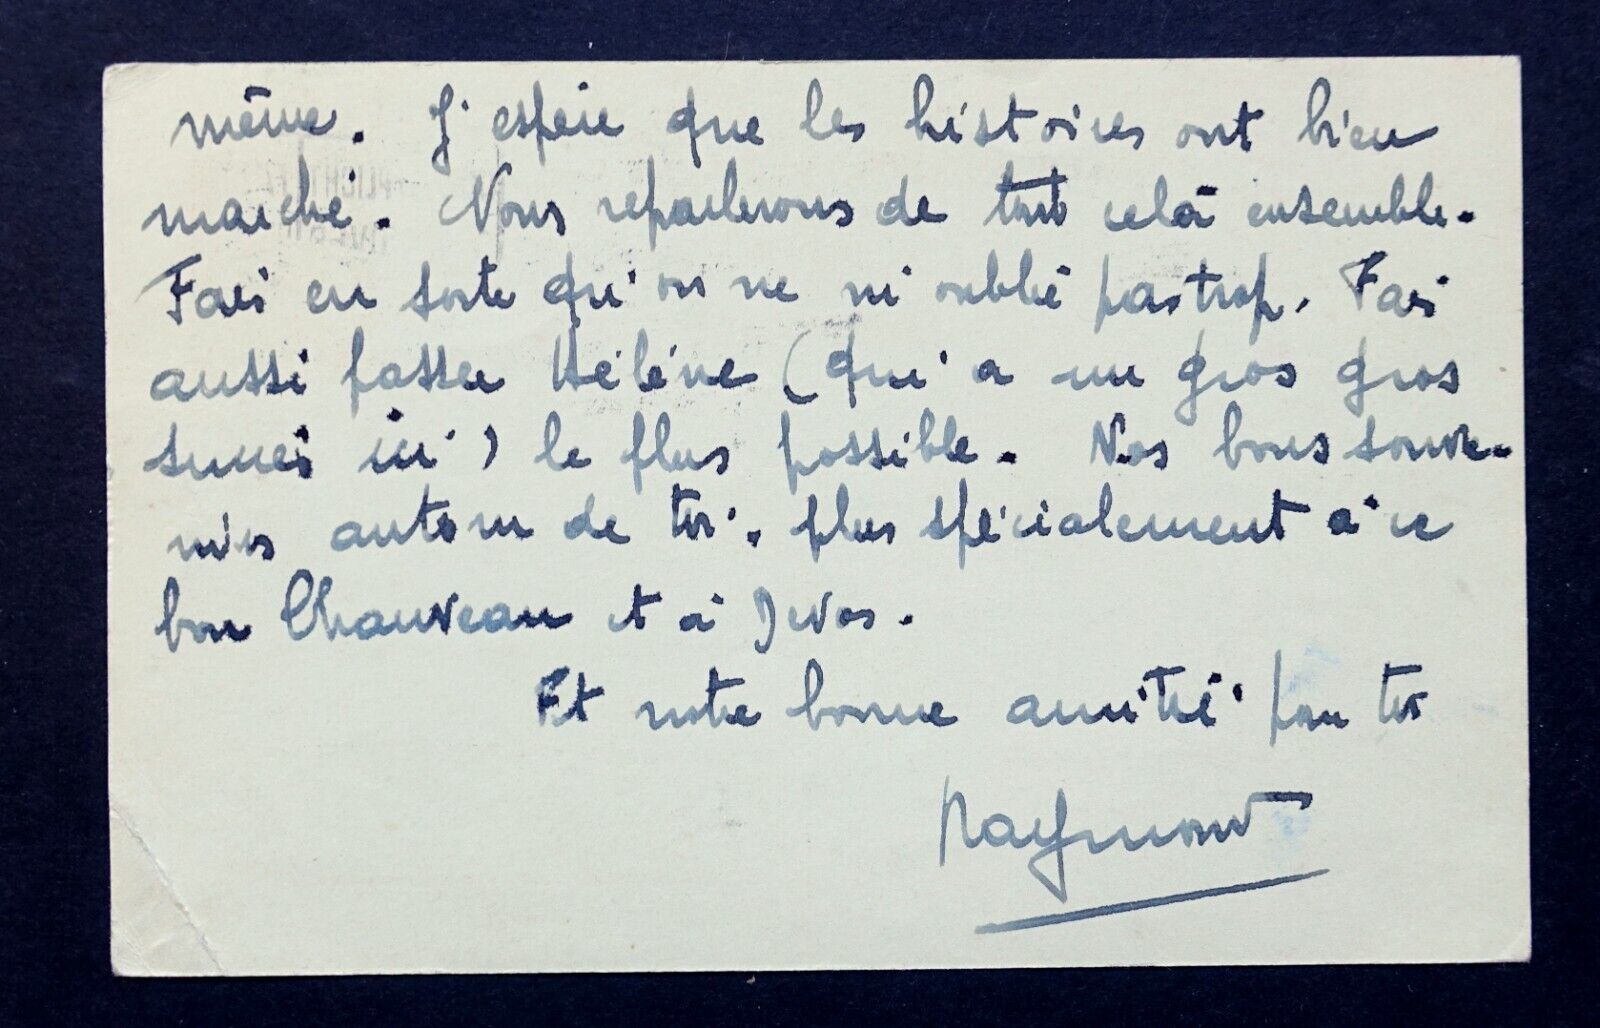 même. J'espère que les histoires ont bien
marché. Nous reparlerons de tout celà ensemble.
Fais en sorte qu'on ne m'oublie pas trop. Fais
aussi passer Hélène (qui a un gros gros
succès ici) le plus possible. Nos bons souve-
nirs autour de toi. plus spécialement à ce
bon Chauveau et à Devos.
Et notre bonne amitié pour toi
Raymond